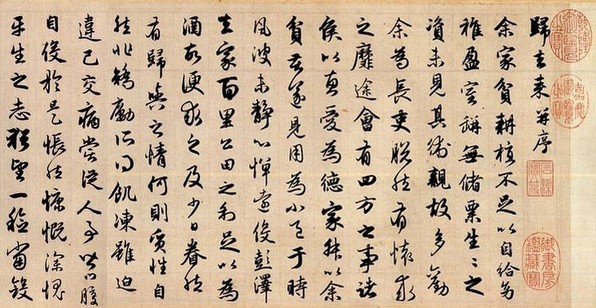 歸去來並序
余家貧耕植不足以自給幼
稚盈室缾無儲粟生生之
資未見其術親故多勸
余為長吏脫然有懷求
之靡途會有四方之事諸
侯以惠愛為德家叔以余
貧苦遂見用為小邑于時
風波未靜心憚遠役彭澤
去家百里公田之利足以為
酒故便求之及少日眷然
有歸與之情何則質性自
然非矯勵所得飢凍雖迫
違己交病嘗從人事皆口腹
自役於是悵然慷慨深愧
平生之志猶望一稔當斂